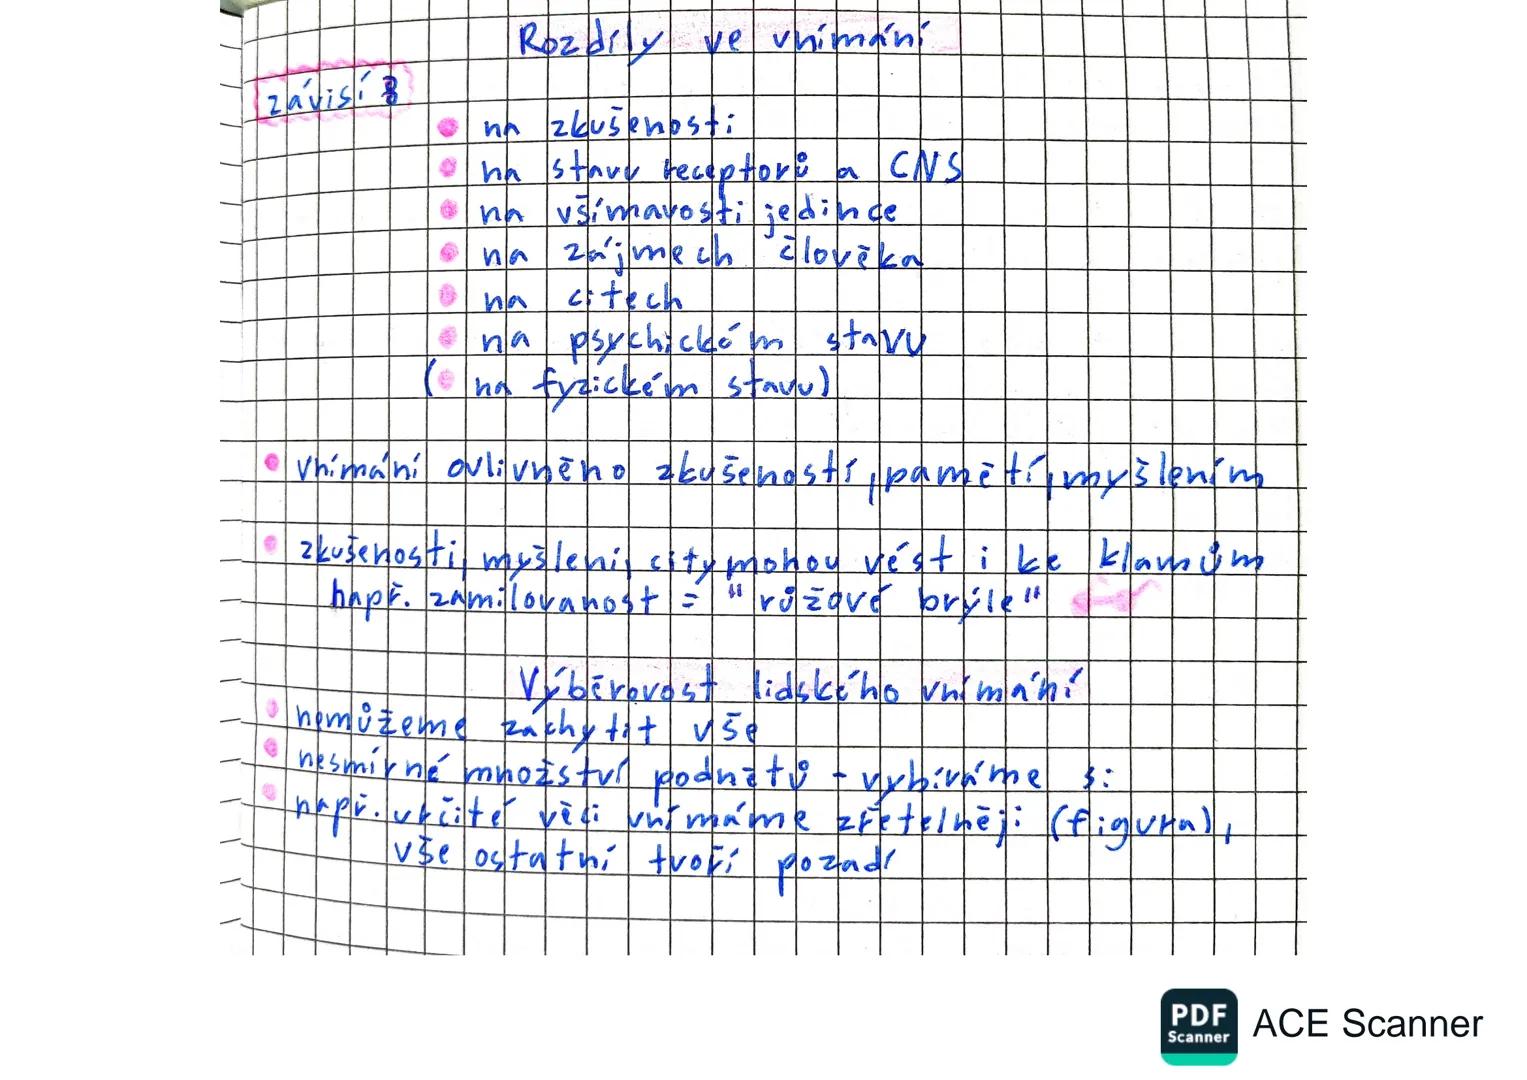 Rozdíly ve vnímání
závisí:
na zkušenosti
na stavu receptorů a CNS
na všímavosti jedince
na zájmech člověka
na citech
na psychickém stavu
(na fyzickém stavu)
vnímání ovlivněno zkušeností, pamětí, myšlením
zkušenosti, myšlení, city mohou vést i ke klamům
např. zamilovanost = "růžové brýle"
Výběrovost lidského vnímání
nemůžeme zachytit vše
nesmírné množství podnětů - vybíráme si
např. určité věci vnímáme zřetelněji (figura),
vše ostatní tvoří pozadí
PDF Scanner ACE Scanner